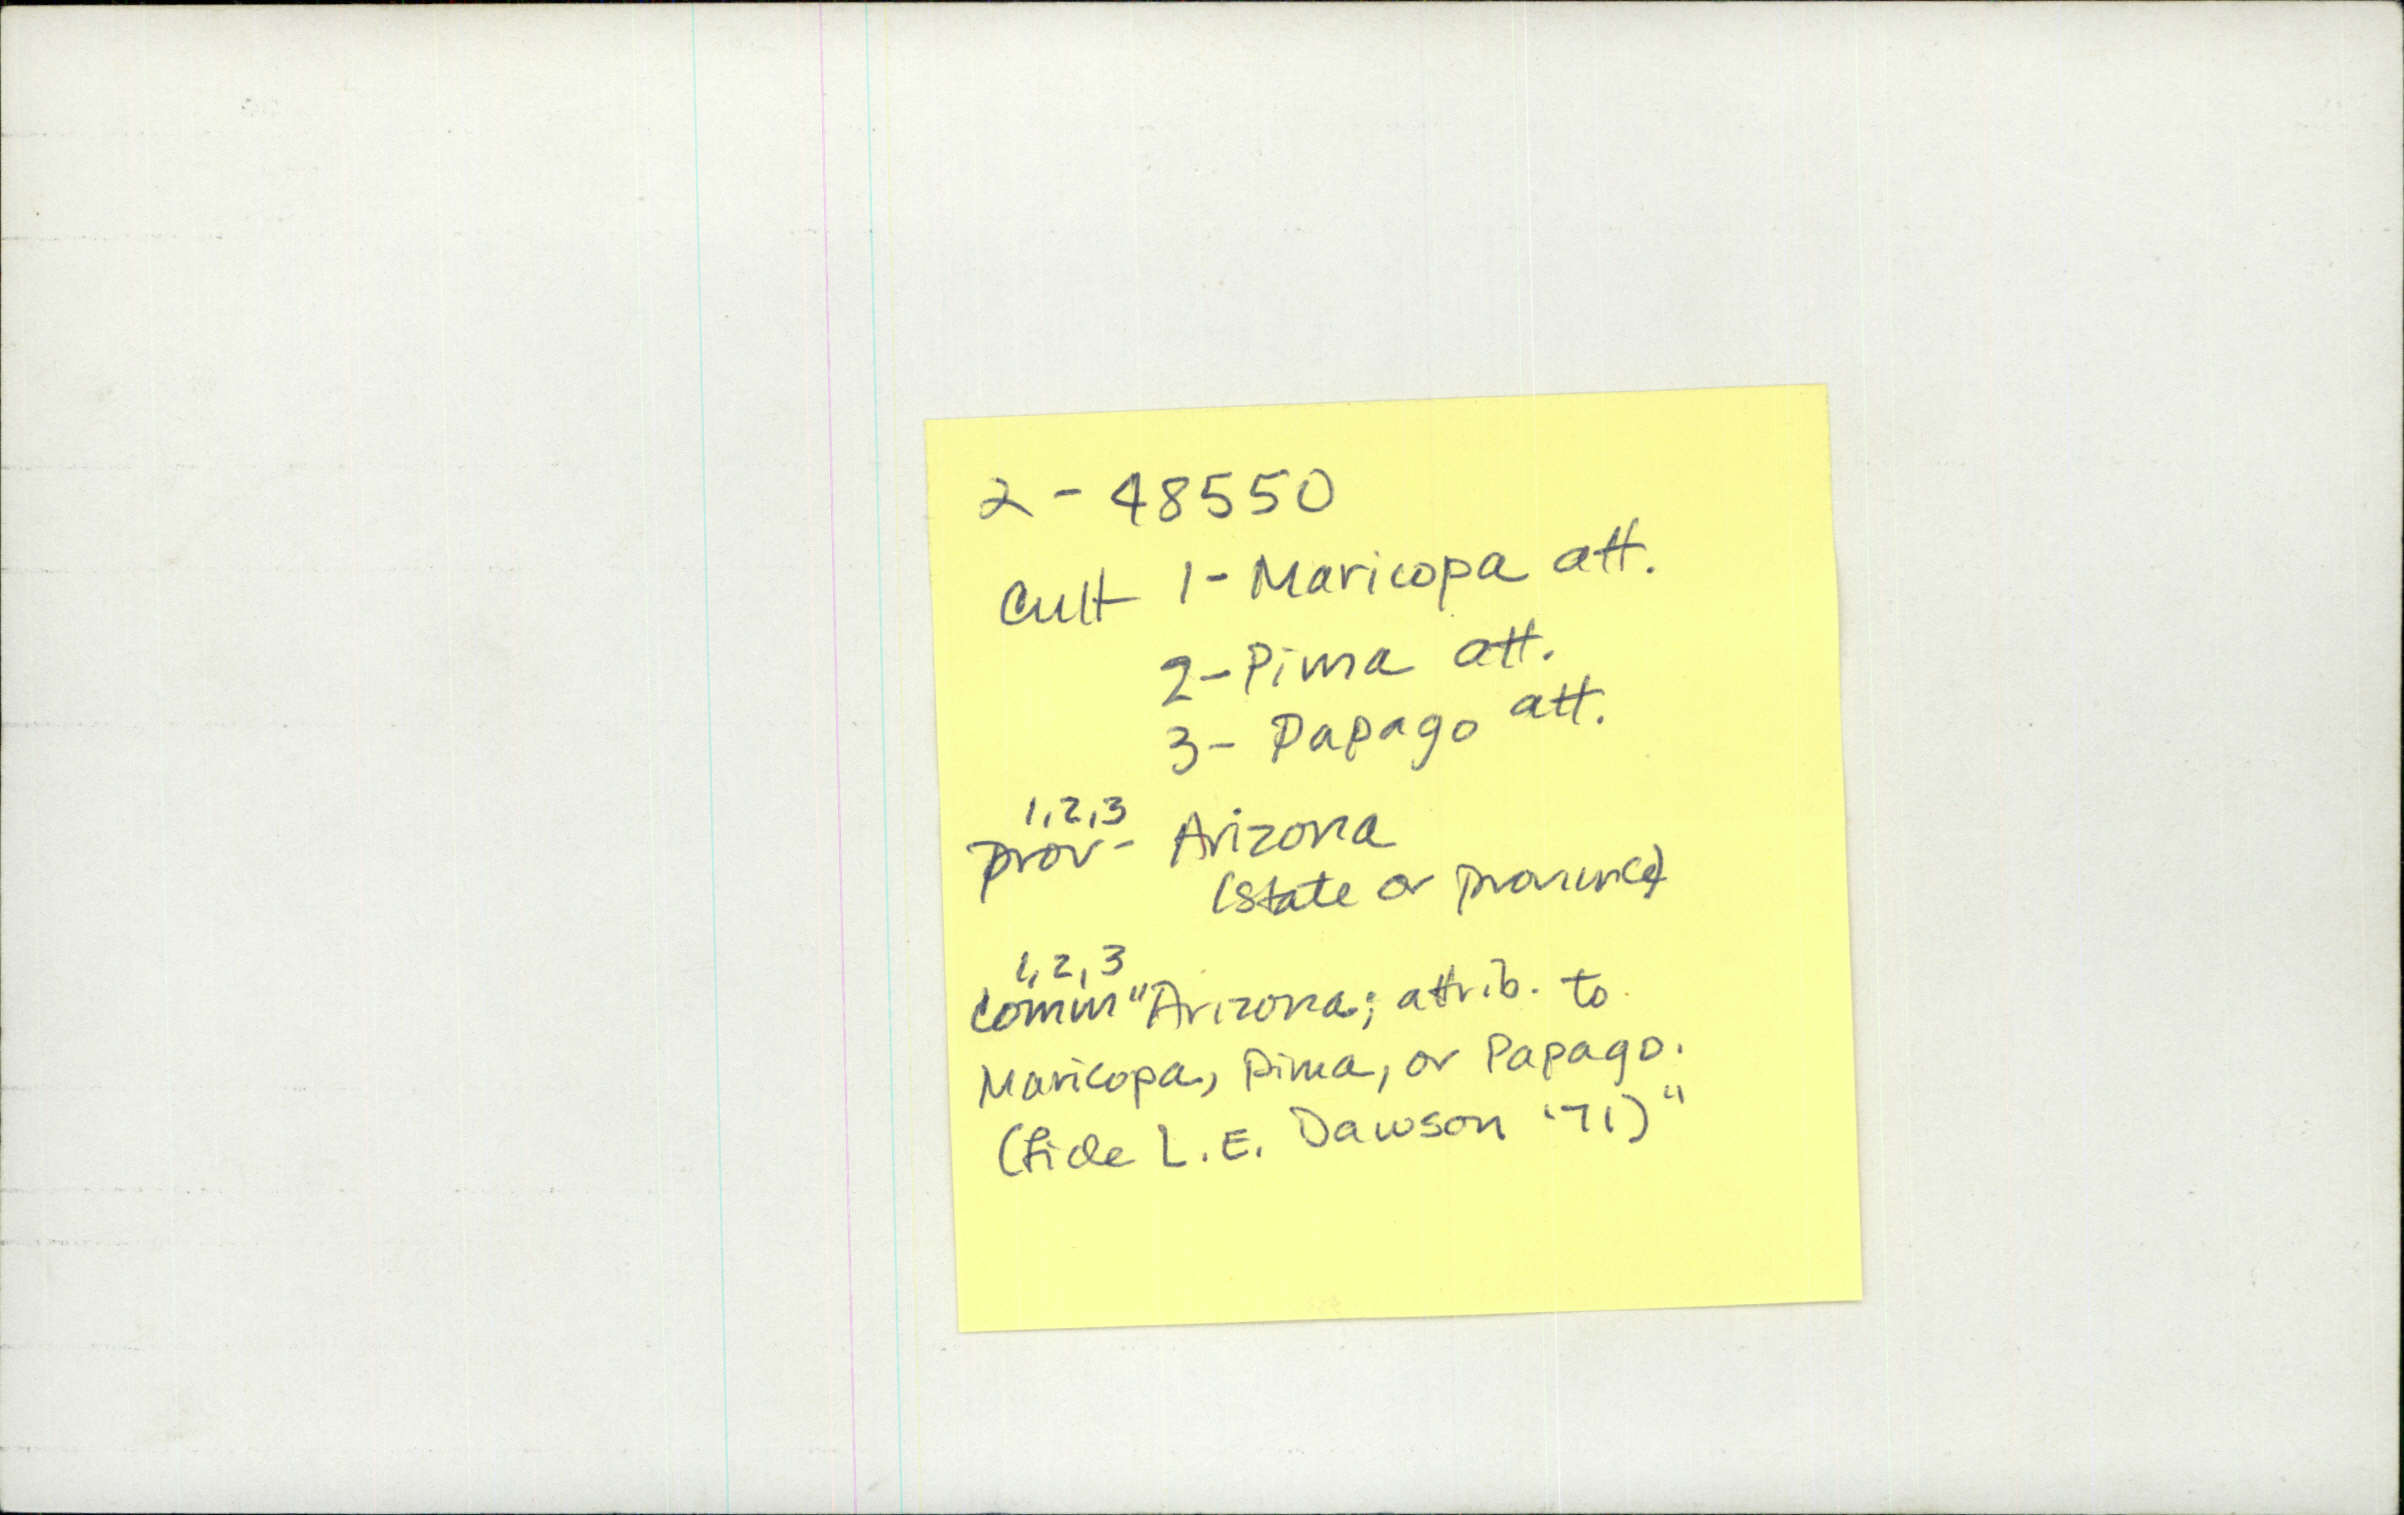 2 - 48550
Cult 1 - Maricopa att.
2 - Pima att.
3 - Papago att.
1, 2, 3
prov - Arizona
(state or province)
1, 2, 3
comm "Arizona; attrib. to
Maricopa, Pima, or Papago.
(fide L.E. Dawson '71)"